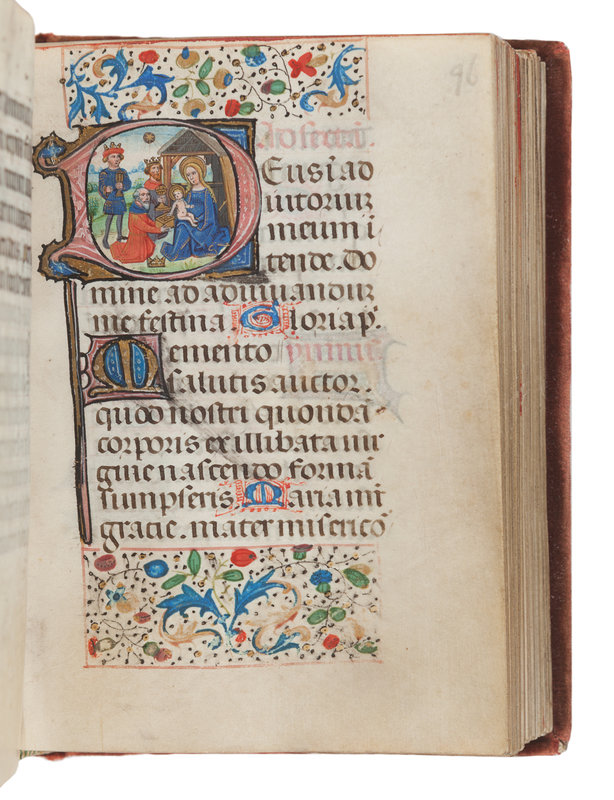 96
Ad sextā.
Deus ī ad
iutoriuʒ
meum ī
tende. Do
mine ad adiuuanduʒ
me festina Gloria p̄.
Memento ymnus
salutis auctor.
quod nostri quondā
corporis ex illibata uir
gine nascendo formā
sumpseris Maria mr̄
gracie. mater miserico